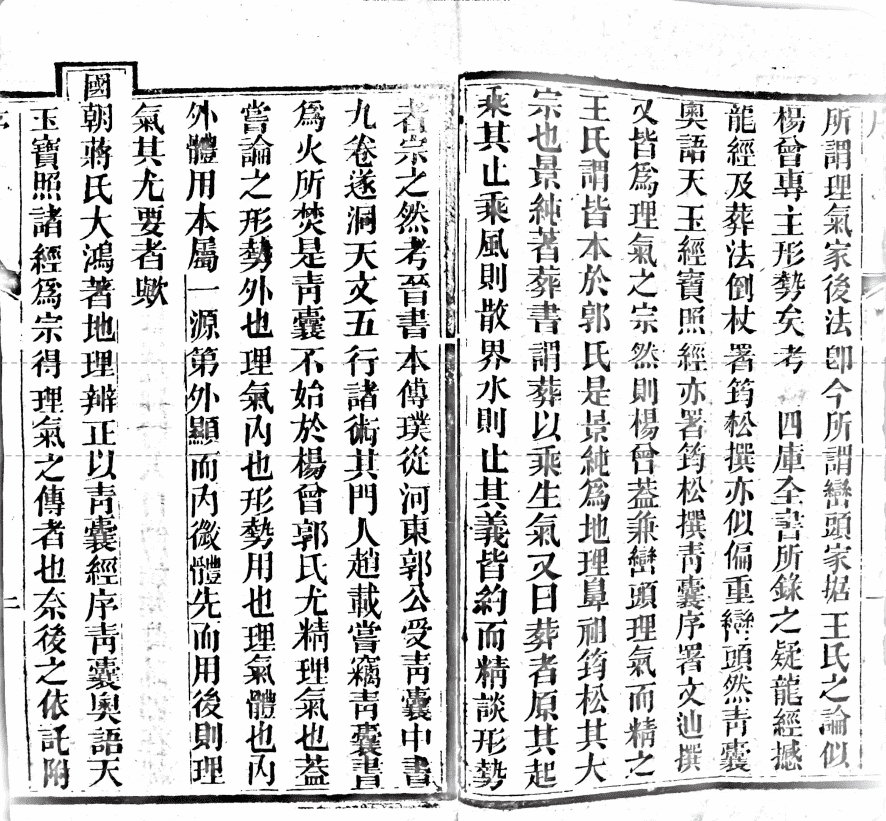 序
所謂理氣家後法卽今所謂巒頭家據王氏之論似
楊曾專主形勢矣考 四庫全書所錄之疑龍經撼
龍經及葬法倒杖署筠松撰亦似偏重巒頭然靑囊
奧語天玉經寶照經亦署筠松撰靑囊序署文辿撰
又皆爲理氣之宗然則楊曾蓋兼巒頭理氣而精之
王氏謂皆本於郭氏是景純爲地理鼻祖筠松其大
宗也景純著葬書謂葬以乘生氣又曰葬者原其起
乘其止乘風則散界水則止其義皆約而精談形勢
者宗之然考晉書本傳璞從河東郭公受靑囊中書
九卷遂洞天文五行諸術其門人趙載嘗竊靑囊書
爲火所焚是靑囊不始於楊曾郭氏尤精理氣也蓋
嘗論之形勢外也理氣內也形勢用也理氣體也內
外體用本屬一源第外顯而內微體先而用後則理
氣其尤要者歟
國朝蔣氏大鴻著地理辨正以靑囊經序靑囊奧語天
玉寶照諸經爲宗得理氣之傳者也奈後之依託附